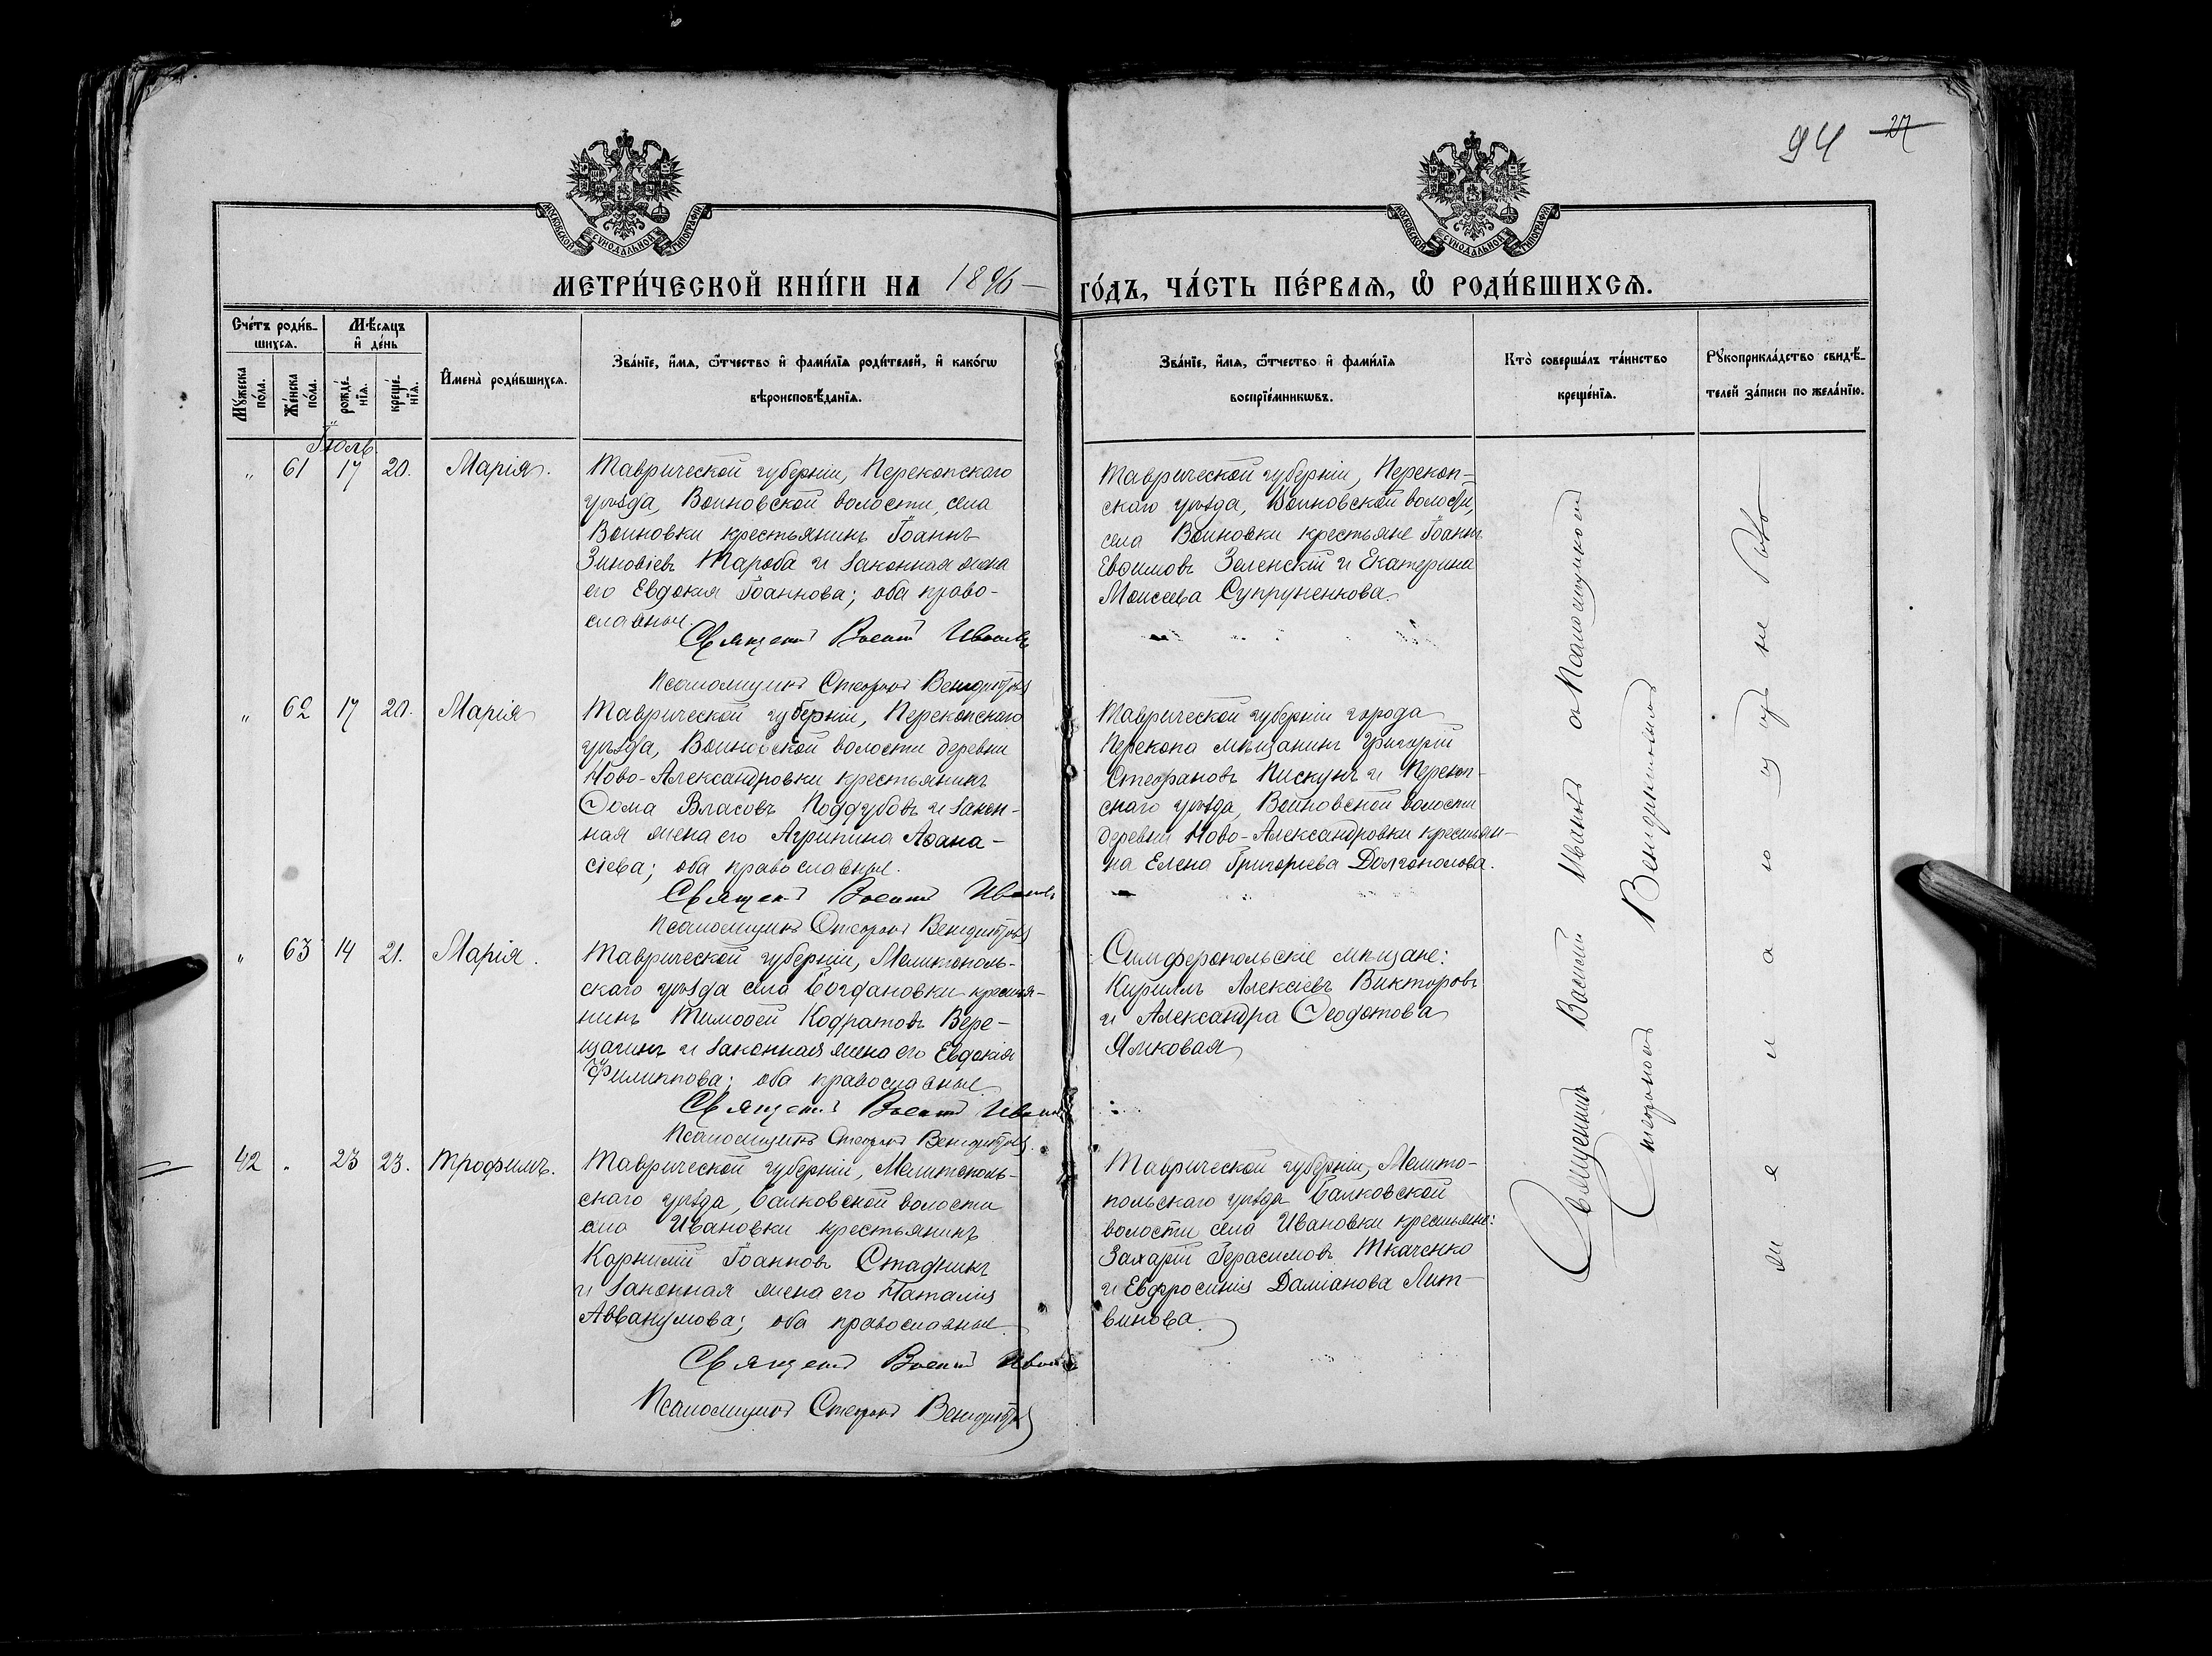 94 27
МОСКОВСКОЙ СУНОДАЛЬНОЙ ТИПОГРАФІИ
МОСКОВСКОЙ СУНОДАЛЬНОЙ ТИПОГРАФІИ
МЕТРИ́ЧЕСКОЙ КНИ́ГИ НА 1896
ГО́ДЪ, ЧА́СТЬ ПЕ́РВАѦ, Ѡ҆ РОДИ́ВШИХСѦ.
Сче́тъ роди́в-
шихсѧ.
Мꙋ́жеска по́ла.
Же́нска по́ла.
Мѣ́сѧцъ
и҆ де́нь
рожде́-
нїѧ.
креще́-
нїѧ.
И҆мена̀ роди́вшихсѧ.
Зва́нїе, и҆́мѧ, ѻ҆́тчество и҆ фами́лїѧ роди́телей, и҆ како́гѡ
вѣроисповѣ́данїѧ.
Зва́нїе, и҆́мѧ, ѻ҆́тчество и҆ фами́лїѧ
воспрїе́мникѡвъ.
Кто̀ соверша́лъ та́инство
креще́нїѧ.
Рꙋкоприкла́дство свидѣ́-
телей за́писи по жела́нїю.
Іюль
" 61 17 20. Марія.
Таврической губерніи, Перекопскаго
уѣзда, Воиновской волости, села
Воиновки крестьянинъ Іоаннъ
Зиновіевъ Тароба и законная жена
его Евдокія Іоаннова; оба право-
славные.
Священ Василій Ивановъ
Псаломщикъ Стефанъ Венедиктовъ
Таврической губерніи, Перекоп-
скаго уѣзда, Воиновской волости,
села Воиновки крестьяне Іоаннъ
Евѳимовъ Зеленскій и Екатерина
Моисеева Супруненкова.
" 62 17 20. Марія
Таврической губерніи, Перекопскаго
уѣзда, Воиновской волости деревни
Ново-Александровки крестьянинъ
Ѳома Власовъ Поддубовъ и закон-
ная жена его Агрипина Аѳана-
сіева; оба православные.
Священ Василій Ивановъ
Псаломщикъ Стефанъ Венедиктовъ
Таврической губерніи города
Перекопа мѣщанинъ Григорій
Стефановъ Пискунъ и Перекоп-
скаго уѣзда, Воиновской волости
деревни Ново-Александровки крестьян-
ка Елена Григорьева Долгополова.
" 63 14 21. Марія.
Таврической губерніи, Мелитополь-
скаго уѣзда села Богдановки крестья-
нинъ Тимоѳей Кодратовъ Вере-
щагинъ и законная жена его Евдокія
Филиппова; оба православные
Священ Василій Ивановъ
Псаломщикъ Стефанъ Венедиктовъ
Симферопольскіе мѣщане:
Кириллъ Алексіевъ Викторовъ
и Александра Ѳеодотова
Ялковая
42 " 23 23. Трофимъ.
Таврической губерніи, Мелитополь-
скаго уѣзда, Балковской волости
села Ивановки крестьянинъ
Корнилій Іоанновъ Стадникъ
и законная жена его Наталія
Аввакумова; оба православные
Священ Василій Ивановъ
Псаломщикъ Стефанъ Венедиктовъ
Таврической губерніи, Мелито-
польскаго уѣзда Балковской
волости села Ивановки крестьяне:
Захарій Герасимовъ Ткаченко
и Евфросинія Даміанова Лит-
винова.
Священникъ Василій Ивановъ с Псаломщикомъ
Стефаномъ Венедиктовымъ